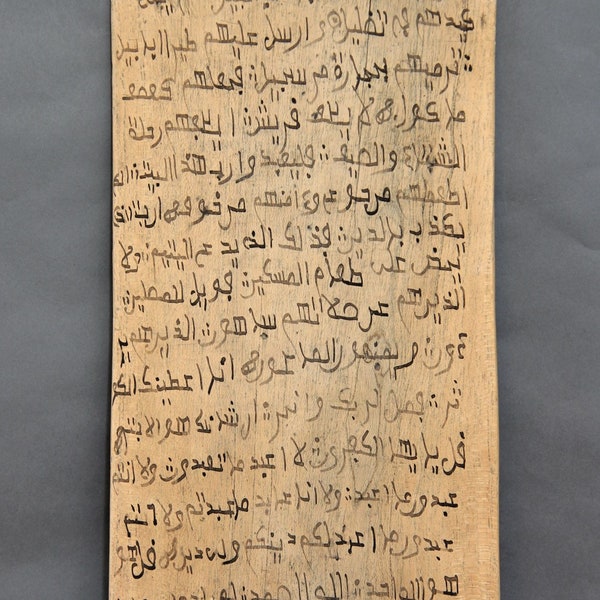 كيدهم في تضليل وارسل عليهم طيرا ابابيل
ترميهم بحجارة من سجيل فجعلهم كعصف
ماكول لايلف قريش الفهم رحلة
الشتاء والصيف فليعبدوا رب هذا البيت الذ
اطعمهم من جوع وءامنهم من خوف اريت الذ
يكذب بالدين فذلك الذ يدع اليتيم ولا
يحض على طعام المسكين فويل للمصلين
الذين هم عن صلاتهم ساهون الذين هم ير
ءون ويمنعون الماعون انا اعطينك الكو
ثر فصل لربك وانحر ان شانئك هو الابتر
قل يايها الكفرون لا اعبد ما تعبدون ولا انتم
عبدون ما اعبد ولا انا عابد ما عبدتم ولا انتم
عبدون ما اعبد لكم دينكم ولي دين قل
الله الصمد